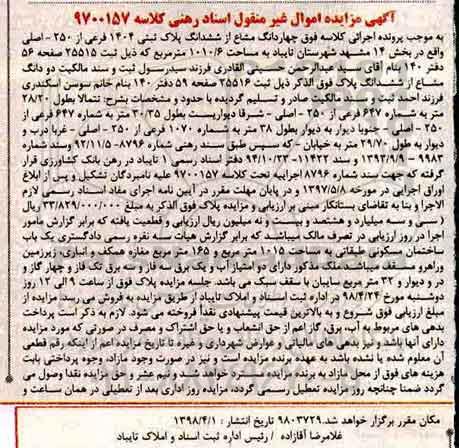 آگهی مزایده اموال غیر منقول اسناد رهنی کلاسه ۹۷۰۰۱۵۷
به موجب پرونده اجرائی کلاسه فوق چهاردانگ مشاع از ششدانگ پلاک ثبتی ۱۴۰۴ فرعی از ۲۵۰ - اصلی
واقع در بخش ۱۴ مشهد شهرستان تایباد به مساحت ۱۰۱۰/۶ مترمربع که ذیل ثبت ۲۵۵۱۵ صفحه ۵۶
دفتر ۱۴۰ بنام آقای سید عبدالرحمن حسینی القادری فرزند سیدرسول ثبت و سند مالکیت دو دانگ
مشاع از ششدانگ پلاک فوق الذکر ذیل ثبت ۲۵۵۱۶ صفحه ۵۹ دفتر ۱۴۰ بنام خانم سوسن اسکندری
فرزند احمد ثبت و سند مالکیت صادر و تسلیم گردیده با حدود و مشخصات بشرح: شمالا بطول ۲۸/۲۰
متر به شماره ۶۴۷ فرعی از ۲۵۰ - اصلی - شرقا دیواریست بطول ۳۰/۳۵ متر به شماره ۶۴۷ فرعی از
۲۵۰ - اصلی - جنوبا دیوار به دیوار بطول ۳۸ متر به شماره ۱۰۷۰ فرعی از ۲۵۰ - اصلی - غربا درب و
دیوار به طول ۲۹/۷۰ متر به خیابان - که سپس طبق سند رهنی شماره ۸۷۹۶- ۹۲/۱۱/۵ وسند
۹۹۸۳ - ۱۳۹۳/۹/۹ و سند ۱۱۴۲۲- ۹۴/۱۰/۲۳ دفتر اسناد رسمی ۱ تایباد در رهن بانک کشاورزی قرار
گرفته که جهت سند شماره ۸۷۹۶ اجراییه تحت کلاسه ۹۷۰۰۱۵۷ علیه نامبردگان تشکیل و پس از ابلاغ
اوراق اجرایی در مورخه ۱۳۹۷/۵/۸ و در پایان مهلت مقرر در آیین نامه اجرای مفاد اسناد رسمی لازم
الاجرا و بنا به تقاضای بستانکار مبنی بر ارزیابی و مزایده پلاک فوق الذکر به مبلغ ۳۳/۸۲۹/۰۰۰/۰۰۰ ریال
( سی و سه میلیارد و هشتصد و بیست و نه میلیون ریال ارزیابی و قطعیت یافته که برابر گزارش مامور
اجرا در روز ارزیابی در تصرف مالک میباشد که برابر گزارش هیات سه نفره رسمی دادگستری یک باب
ساختمان مسکونی طبقاتی به مساحت ۱۰۱۵ متر مربع و ۱۶۵ متر مربع مغازه همکف و انباری، زیرزمین
وراهرو مسقف میباشد ملک مذکور دارای دو امتیاز آب و یک برق سه فاز و سه برق تک فاز و چهار گاز و
در و دیوار و ۳۲ متر مربع سایبان با سقف سبک می باشد. جلسه مزایده پلاک فوق از ساعت ۹ الی ۱۲ روز
دوشنبه مورخ ۹۸/۴/۲۴ در اداره ثبت اسناد و املاک تایباد از طریق مزایده به فروش می رسد. مزایده از
مبلغ ارزیابی فوق شروع و به بالاترین قیمت پیشنهادی نقداً فروخته می شود. لازم به ذکر است پرداخت
بدهی های مربوط به آب، برق، گاز اعم از حق انشعاب و یا حق اشتراک و مصرف در صورتی که مورد مزایده
دارای آنها باشد و نیز بدهی های مالیاتی و عوارض شهرداری و غیره تا تاریخ مزایده اعم از اینکه رقم قطعی
آن معلوم شده یا نشده باشد به عهده برنده مزایده است و نیز در صورت وجود مازاد، وجوه پرداختی بابت
هزینه های فوق از محل مازاد به برنده مزایده مسترد خواهد شد و نیم عشر و حق مزایده نقدا وصول می
گردد ضمنا چنانچه روز مزایده تعطیل رسمی گردد، مزایده روز اداری بعد از تعطیلی در همان ساعت و
مکان مقرر برگزار خواهد شد. ۹۸۰۳۷۲۹ تاریخ انتشار : ۱۳۹۸/۴/۱
غلامرضا آقازاده / رئیس اداره ثبت اسناد و املاک تایباد